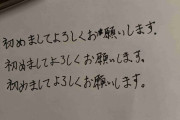 初めましてよろしくお願いします。
初めましてよろしくお願いします。
初めましてよろしくお願いします。